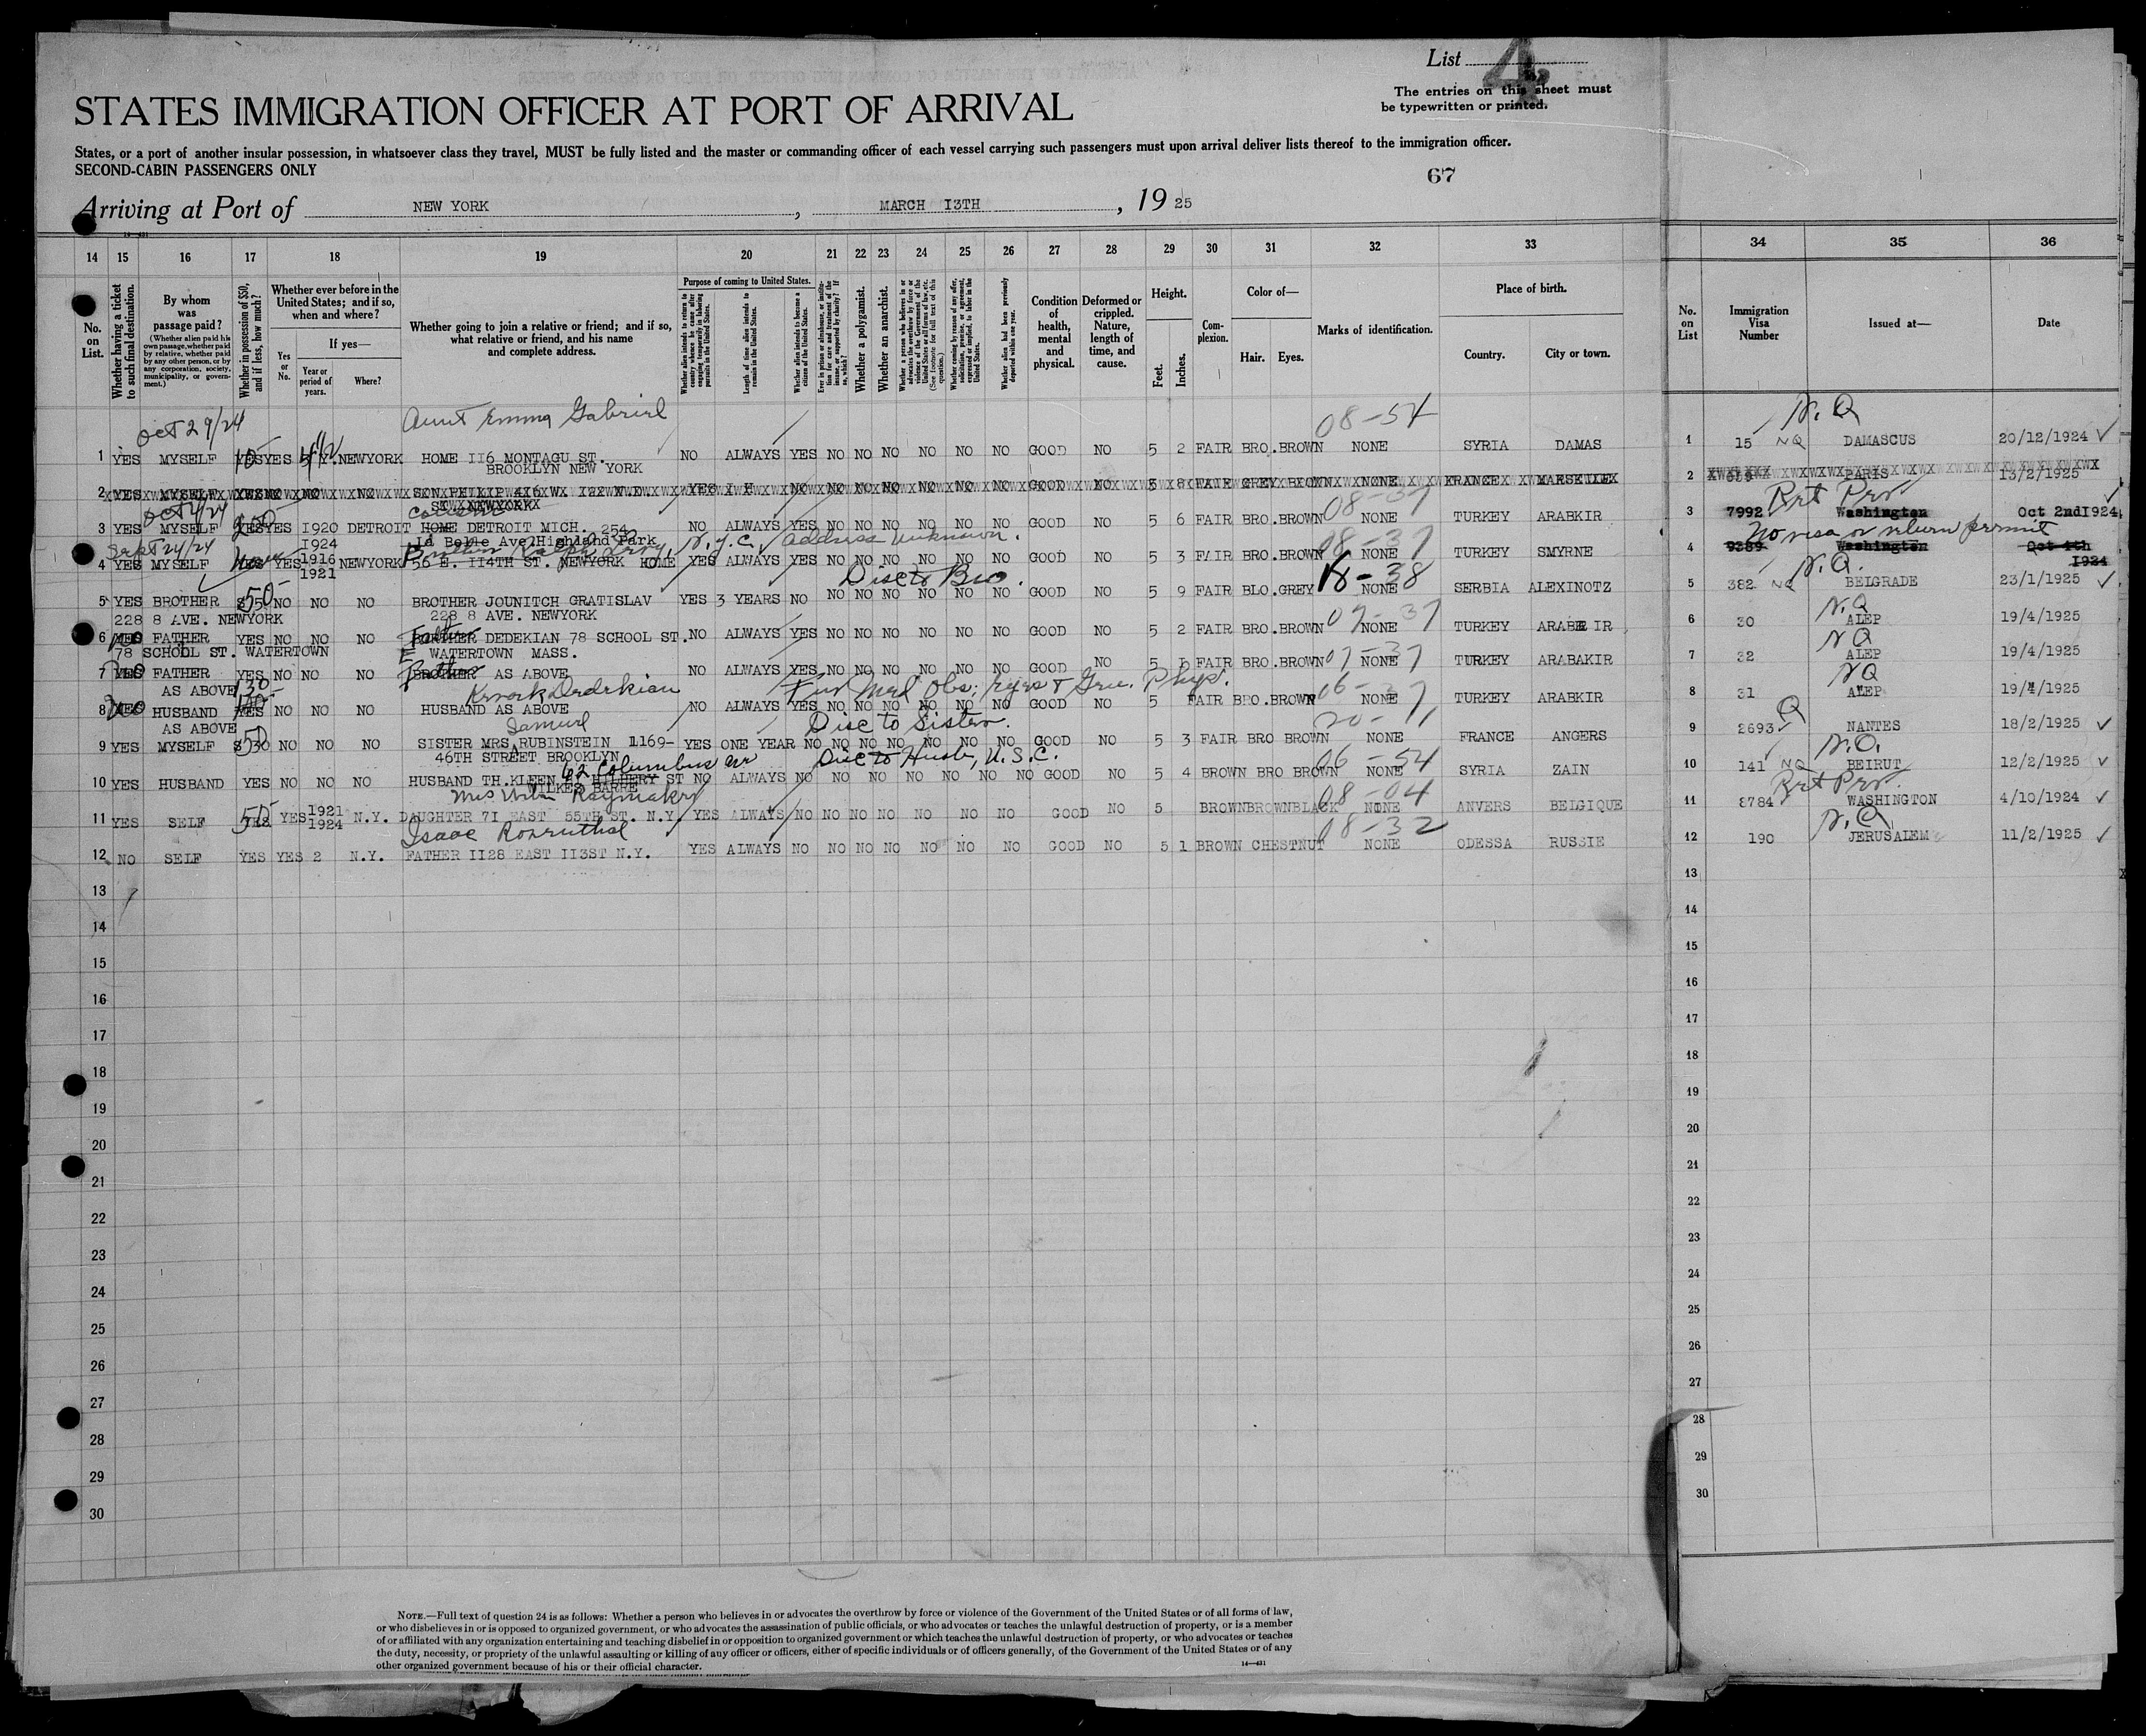 List 4
The entries on this sheet must
be typewritten or printed.
STATES IMMIGRATION OFFICER AT PORT OF ARRIVAL
States, or a port of another insular possession, in whatsoever class they travel, MUST be fully listed and the master or commanding officer of each vessel carrying such passengers must upon arrival deliver lists thereof to the immigration officer.
SECOND-CABIN PASSENGERS ONLY
67
Arriving at Port of NEW YORK , MARCH I3TH , 19 25
14 15 16 17 18 19 20 21 22 23 24 25 26 27 28 29 30 31 32 33 34 35 36
No. on List.
Whether having a ticket to such final destination.
By whom was passage paid?
(Whether alien paid his own passage, whether paid by relative, whether paid by any other person, or by any corporation, society, municipality, or government.)
Whether in possession of $50, and if less, how much?
Whether ever before in the United States; and if so, when and where?
Yes or No.
If yes—
Year or period of years.
Where?
Whether going to join a relative or friend; and if so, what relative or friend, and his name and complete address.
Purpose of coming to United States.
Whether alien intends to return to country whence he came after engaging temporarily in laboring pursuits in the United States.
Length of time alien intends to remain in the United States.
Whether alien intends to become a citizen of the United States.
Ever in prison or almshouse, or institution for care and treatment of the insane, or supported by charity? If so, which?
Whether a polygamist.
Whether an anarchist.
Whether coming by reason of any offer, solicitation, promise, or agreement, expressed or implied, to labor in the United States.
Whether alien had been previously deported within one year.
Condition of health, mental and physical.
Deformed or crippled. Nature, length of time, and cause.
Height.
Feet.
Inches.
Complexion.
Color of—
Hair.
Eyes.
Marks of identification.
Place of birth.
Country.
City or town.
No. on List
Immigration Visa Number
Issued at—
Date
Oct 29/24 Aunt Emma Gabriel 08-54 N.Q
1 YES MYSELF YES YES NEWYORK HOME II6 MONTAGU ST. NO ALWAYS YES NO NO NO NO NO NO GOOD NO 5 2 FAIR BRO.BROWN NONE SYRIA DAMAS 1 15 NQ DAMASCUS 20/12/1924
BROOKLYN NEW YORK
2 YES MYSELF NO NO SON PHILIP YES NO NO NO NO NO NO NO GOOD NO 5 8 FAIR GREY BROWN NONE FRANCE 2 PARIS 13/2/1925
08-37
3 YES MYSELF YES YES I920 DETROIT HOME DETROIT MICH. 254 NO ALWAYS YES NO NO NO NO NO NO GOOD NO 5 6 FAIR BRO.BROWN NONE TURKEY ARABKIR 3 7992 Washington Oct 2nd I924
I924 La Belle Ave.Highland Park
Sept 24/24 N.Y.C. address unknown. 08-37 No visa or return permit
4 YES MYSELF YES 1916 NEWYORK 56 E. II4TH ST. NEWYORK HOME YES ALWAYS YES NO NO NO NO NO NO GOOD NO 5 3 FAIR BRO.BROWN NONE TURKEY SMYRNE 4 9389 Washington Oct 4th I924
1921 Disc to Bro. N.Q.
5 YES BROTHER 50 NO NO NO BROTHER JOUNITCH GRATISLAV YES 3 YEARS NO NO NO NO NO NO NO GOOD NO 5 9 FAIR BLO.GREY NONE SERBIA ALEXINOTZ 5 382 NQ BELGRADE 23/1/1925
228 8 AVE. NEWYORK 228 8 AVE. NEWYORK 07-37 N.Q
6 FATHER YES NO NO NO Father DEDEKIAN 78 SCHOOL ST. NO ALWAYS YES NO NO NO NO NO NO GOOD NO 5 2 FAIR BRO.BROWN NONE TURKEY 6 30 ALEP 19/4/1925
78 SCHOOL ST. WATERTOWN E WATERTOWN MASS. 07-37 NQ
7 FATHER YES NO NO NO BROTHER AS ABOVE NO ALWAYS YES NO NO NO NO NO NO GOOD NO 5 FAIR BRO.BROWN NONE TURKEY ARABAKIR 7 32 ALEP 19/4/1925
AS ABOVE 06-37 NQ
8 HUSBAND YES NO NO NO HUSBAND AS ABOVE NO ALWAYS YES NO NO NO NO NO NO GOOD NO 5 FAIR BRO.BROWN NONE TURKEY ARABKIR 8 31 ALEP 19/4/1925
AS ABOVE Samuel Disc to Sister. 20-11 Q
9 YES MYSELF 50 NO NO NO SISTER MRS RUBINSTEIN 1169- YES ONE YEAR NO NO NO NO NO NO NO GOOD NO 5 3 FAIR BRO BROWN NONE FRANCE ANGERS 9 2693 NANTES 18/2/1925
46TH STREET BROOKLYN
62 Columbus Av Disc to Husb, U.S.C. 06-54 N.Q.
10 YES HUSBAND YES NO NO NO HUSBAND TH.KLEEN ST NO ALWAYS NO NO NO NO NO NO NO GOOD NO 5 4 BROWN BRO BROWN NONE SYRIA ZAIN 10 141 NQ BEIRUT 12/2/1925
WILKES BARRE
08-04
11 YES SELF YES 1921 1924 N.Y. DAUGHTER 7I EAST 55TH ST. N.Y. YES ALWAYS NO NO NO NO NO NO NO GOOD NO 5 BROWNBROWNBLACK NONE ANVERS BELGIQUE 11 8784 WASHINGTON 4/10/1924
Isaac Rosenthal 08-32 N.Q
12 NO SELF YES YES 2 N.Y. FATHER II28 EAST II3ST N.Y. YES ALWAYS NO NO NO NO NO NO NO GOOD NO 5 1 BROWN CHESTNUT NONE ODESSA RUSSIE 12 190 JERUSALEM 11/2/1925
13 13
14 14
15 15
16 16
17 17
18 18
19 19
20 20
21 21
22 22
23 23
24 24
25 25
26 26
27 27
28 28
29 29
30 30
NOTE.—Full text of question 24 is as follows: Whether a person who believes in or advocates the overthrow by force or violence of the Government of the United States or of all forms of law,
or who disbelieves in or is opposed to organized government, or who advocates the assassination of public officials, or who advocates or teaches the unlawful destruction of property, or is a member
of or affiliated with any organization entertaining and teaching disbelief in or opposition to organized government or which teaches the unlawful destruction of property, or who advocates or teaches
the duty, necessity, or propriety of the unlawful assaulting or killing of any officer or officers, either of specific individuals or of officers generally, of the Government of the United States or of any
other organized government because of his or their official character.
14—431